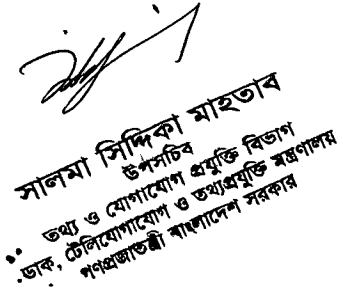 সালমা সিদ্দিকা মাহতাব
উপসচিব
তথ্য ও যোগাযোগ প্রযুক্তি বিভাগ
ডাক, টেলিযোগাযোগ ও তথ্যপ্রযুক্তি মন্ত্রণালয়
গণপ্রজাতন্ত্রী বাংলাদেশ সরকার